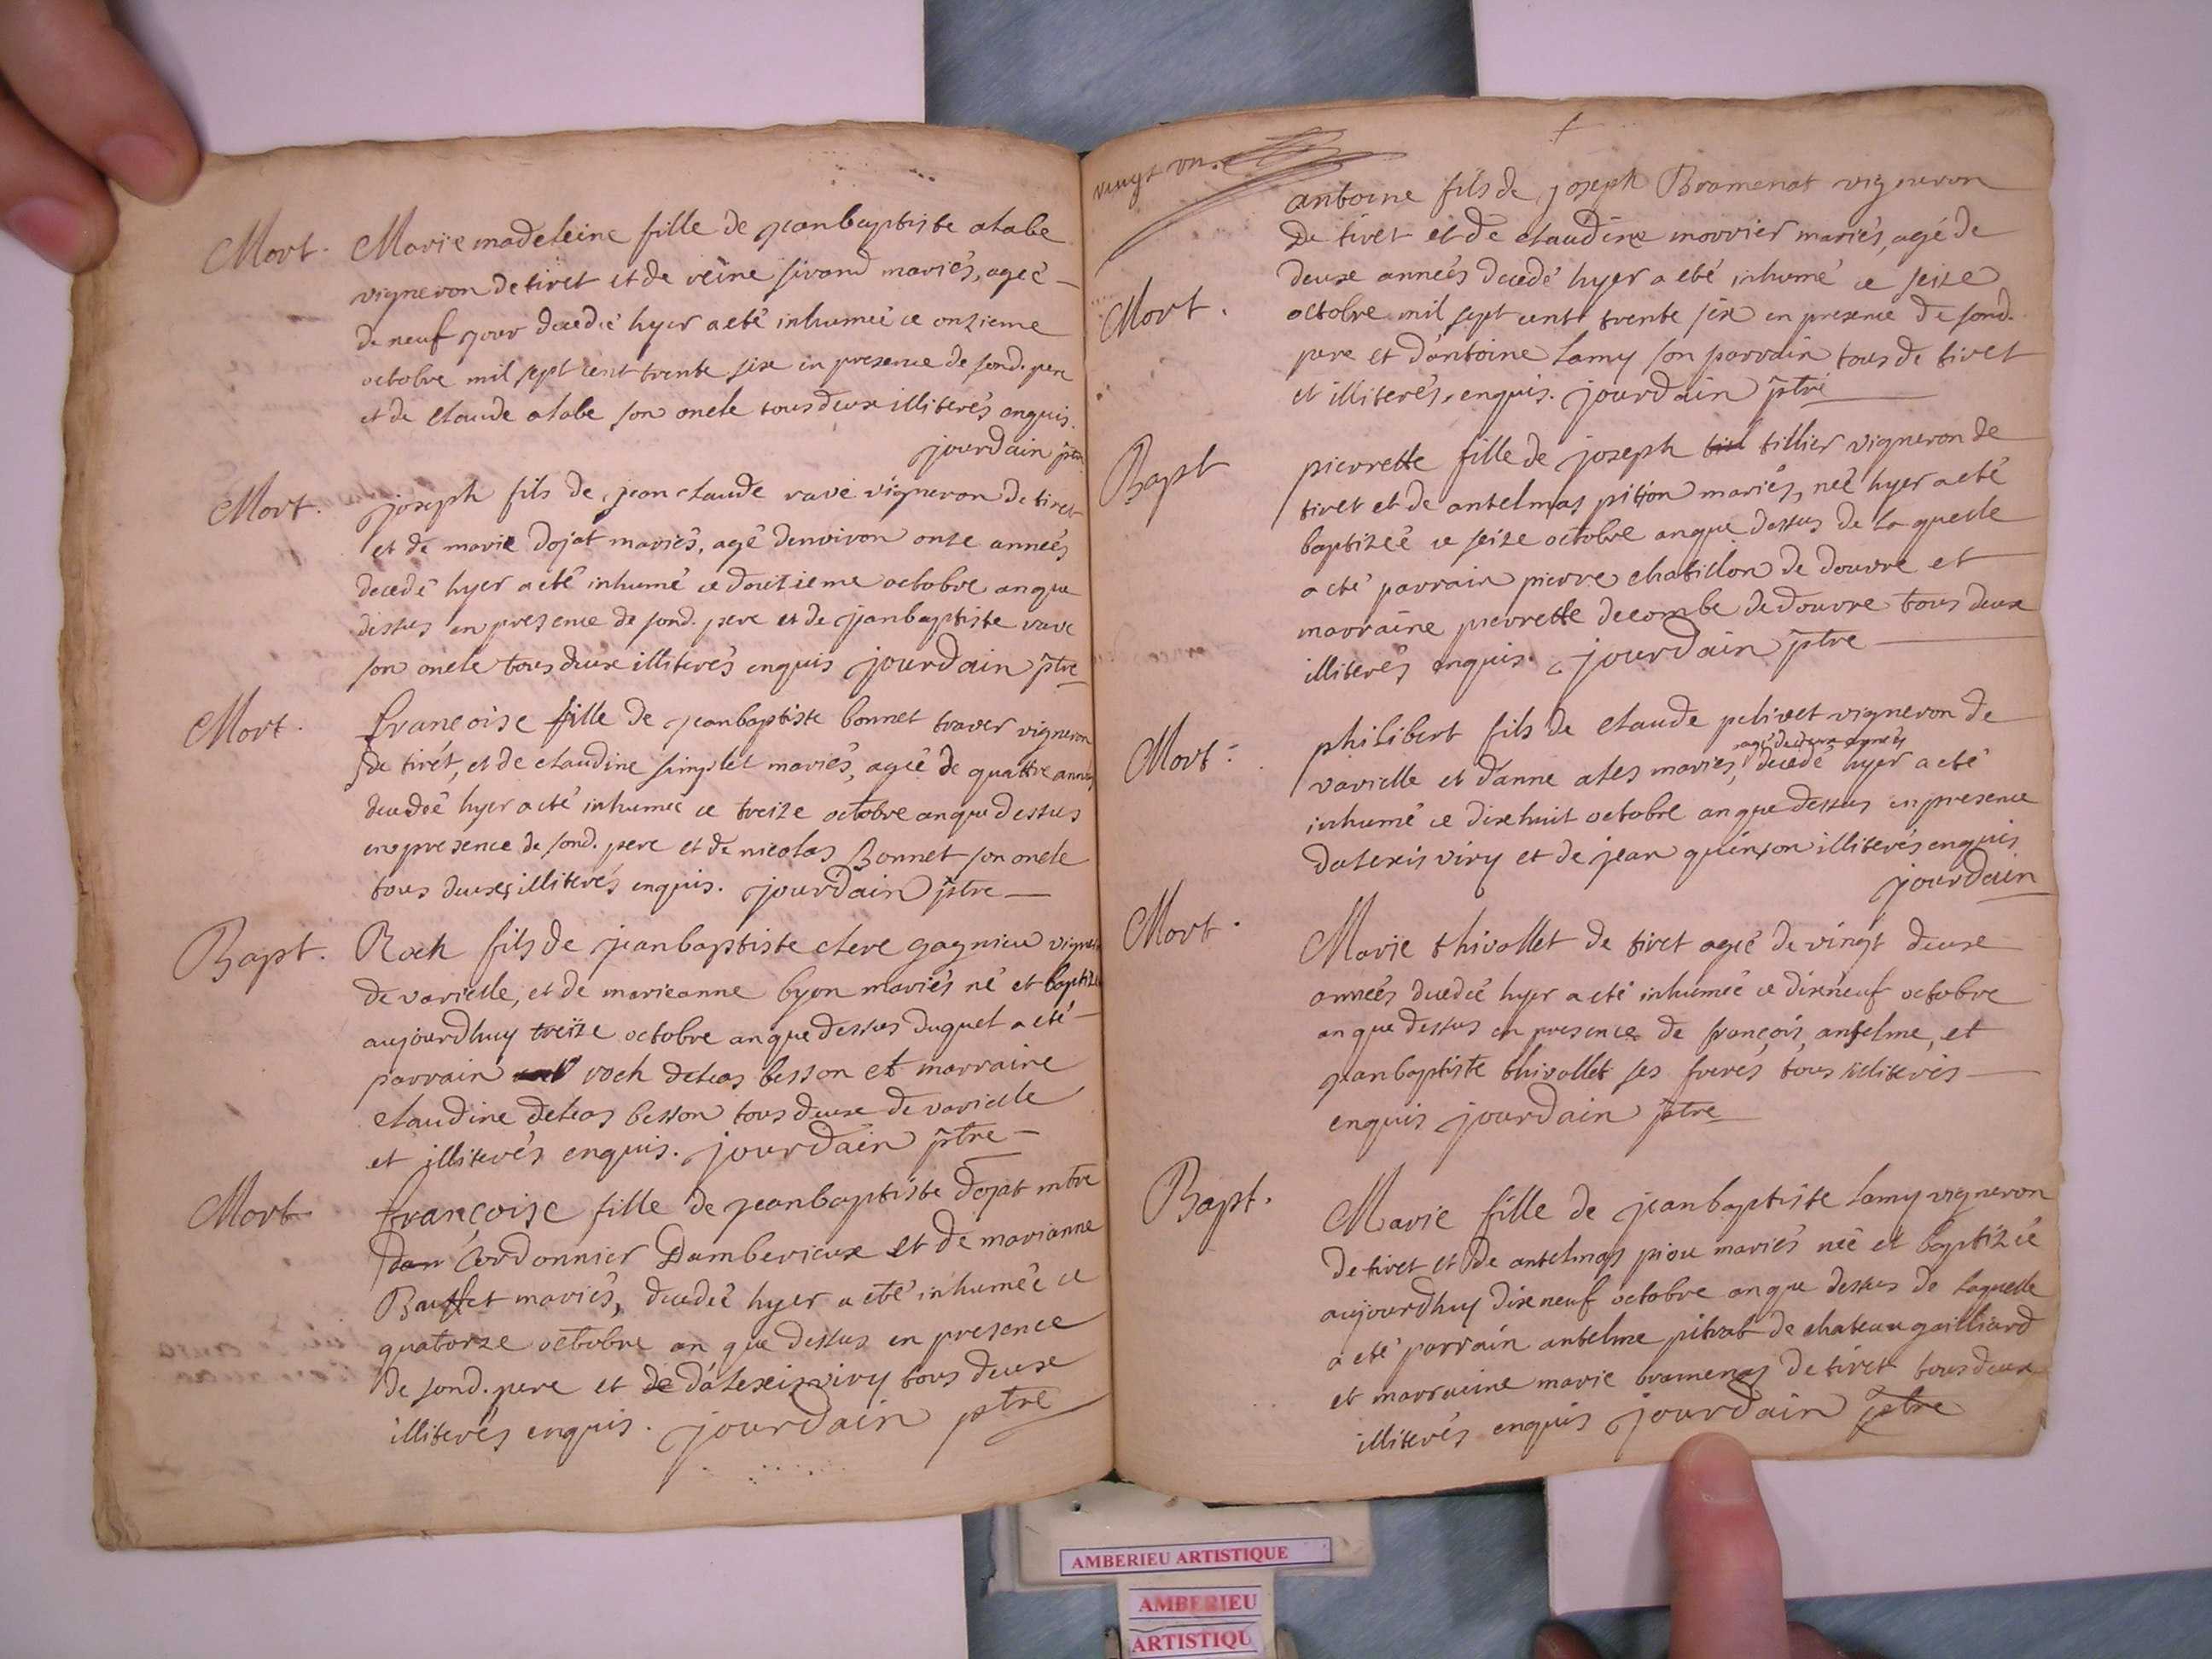 Mort. Marie madeleine fille de jeanbaptiste alabe
vigneron de tiret et de reine sivand mariés, ageé
de neuf jour decedeé hyer a eté inhumeé ce onzieme
octobre mil sept cent trente six en presence de sond. pere
et de claude alabe son oncle tous deux illiterés enquis.
jourdain ptre
Mort. joseph fils de jean claude ravé vigneron de tiret
et de marie dojat mariés, agé denviron onze anneés
decedé hyer a eté inhumé ce douzieme octobre an que
dessus en presence de sond. pere et de jeanbaptiste rave
son oncle tous deux illiterés enquis jourdain ptre
Mort. françoise fille de jeanbaptiste bonnet traver vigneron
de tirét, et de claudine simplet mariés, ageé de quattre anneés
decedeé hyer a eté inhumeé ce treize octobre an que dessus
en presence de sond. pere et de nicolas Bonnet son oncle
tous deux illiterés enquis. jourdain ptre
Bapt. Roch fils de jeanbaptiste clere gagnieu vigneron
de varielle, et de marieanne byon mariés né et baptizé
aujourdhuy treize octobre an que dessus duquel a eté
parrain roch deleas besson et marraine
claudine deleas besson tous deux de varielle
et illiterés enquis. jourdain ptre
Mort françoise fille de jeanbaptiste dojat mtre
dam Cordonnier Damberieux et de marianne
Bauffet mariés, decedeé hyer a eté inhumeé ce
quatorze octobre an que dessus en presence
de sond. pere et de d'alexis viry tous deux
illiterés enquis. jourdain ptre
vingt un.
antoine fils de joseph Bramenat vigneron
De tiret et de claudine morrier mariés, agé de
deux anneés decedé hyer a eté inhumé ce seize
Mort. octobre mil sept cent trente six en presence de sond.
pere et d'antoine Lamy son parrain tous de tiret
et illiterés, enquis. jourdain ptre
Bapt pierrette fille de joseph til tillier vigneron de
tiret et de antelmas pition mariés, neé hyer a eté
baptizeé ce seize octobre an que dessus de la quelle
a eté parrain pierre chatillon de douvre et
marraine pierrette decombe de douvre tous deux
illiterés enquis. jourdain ptre
Mort. philibert fils de claude pelivet vigneron de
agé de deux anneés
varielle et d'anne ales mariés, decedé hyer a eté
inhumé ce dix huit octobre an que dessus en presence
dalexis viry et de jean quinson illiterés enquis
jourdain
Mort. Marie thivollet de tiret ageé de vingt deux
anneés decedeé hyer a eté inhumeé ce dixneuf octobre
an que dessus en presence de françois, anselme, et
jeanbaptiste thivollet ses freres tous illiterés
enquis jourdain ptre
Bapt. Marie fille de jeanbaptiste Lamy vigneron
de tiret et de antelmas piou mariés neé et baptizeé
aujourdhuy dixneuf octobre an que dessus de laquelle
a eté parrain antelme pitrat de chateau gailliard
et marraine marie bramenas de tiret tous deux
illiterés enquis jourdain ptre
AMBERIEU ARTISTIQUE
AMBERIEU
ARTISTIQU